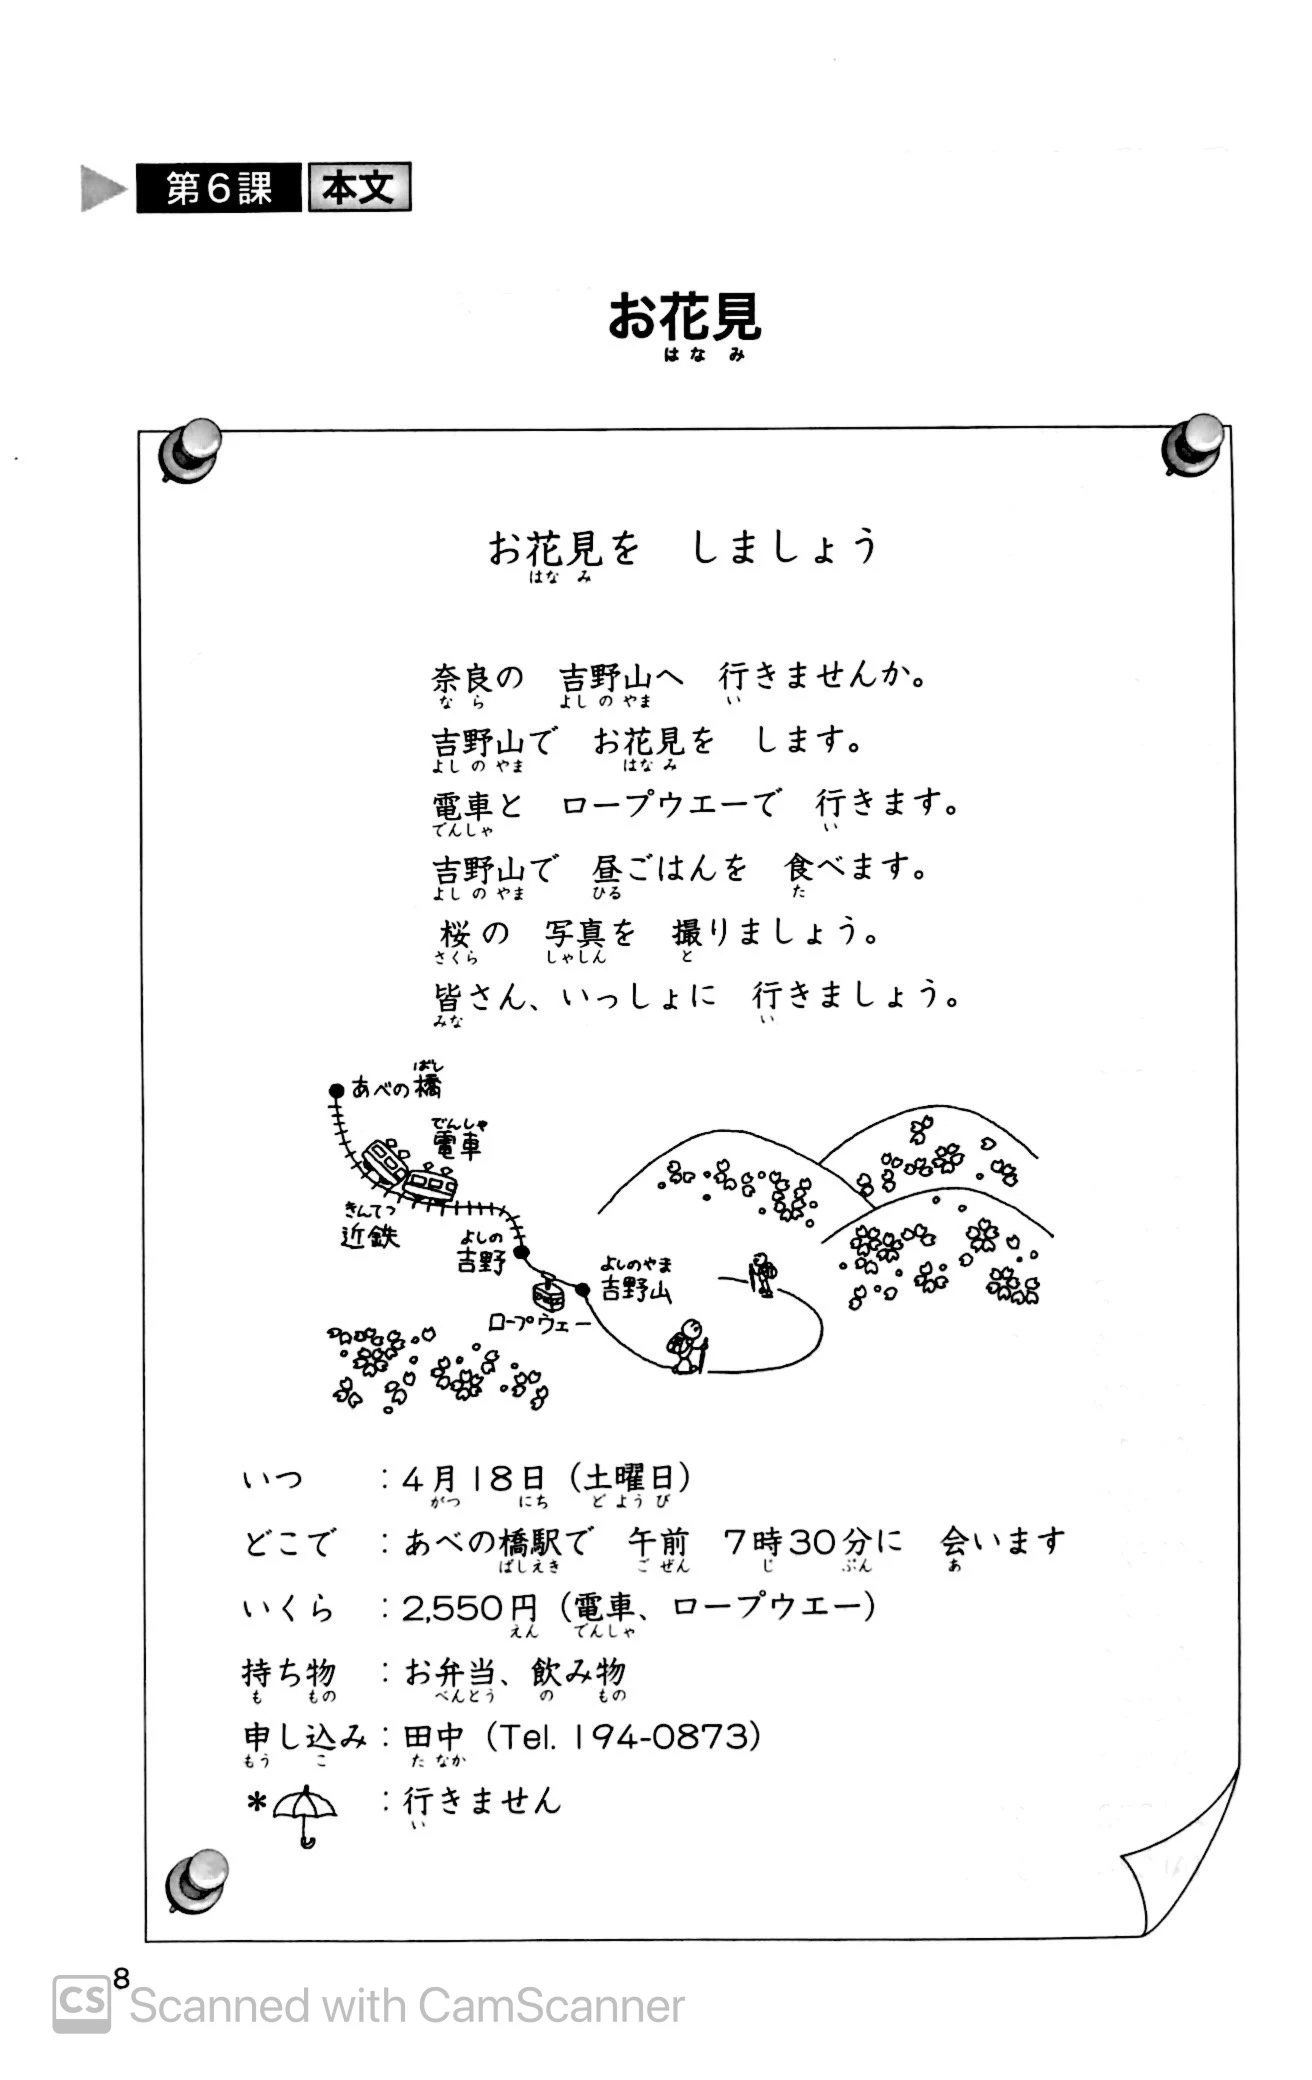 第6課 本文
お花見
はなみ
お花見を しましょう
はなみ
奈良の 吉野山へ 行きませんか。
なら よしのやま い
吉野山で お花見を します。
よしのやま はなみ
電車と ロープウエーで 行きます。
でんしゃ い
吉野山で 昼ごはんを 食べます。
よしのやま ひる た
桜の 写真を 撮りましょう。
さくら しゃしん と
皆さん、いっしょに 行きましょう。
みな い
ばし
あべの橋
でんしゃ
電車
きんてつ
近鉄
よしの
吉野
よしのやま
吉野山
ロープウェー
いつ :4月18日(土曜日)
がつ にち どようび
どこで :あべの橋駅で 午前 7時30分に 会います
ばしえき ごぜん じ ぷん あ
いくら :2,550円(電車、ロープウエー)
えん でんしゃ
持ち物 :お弁当、飲み物
も もの べんとう の もの
申し込み:田中(Tel. 194-0873)
もう こ たなか
* :行きません
い
8
CS Scanned with CamScanner